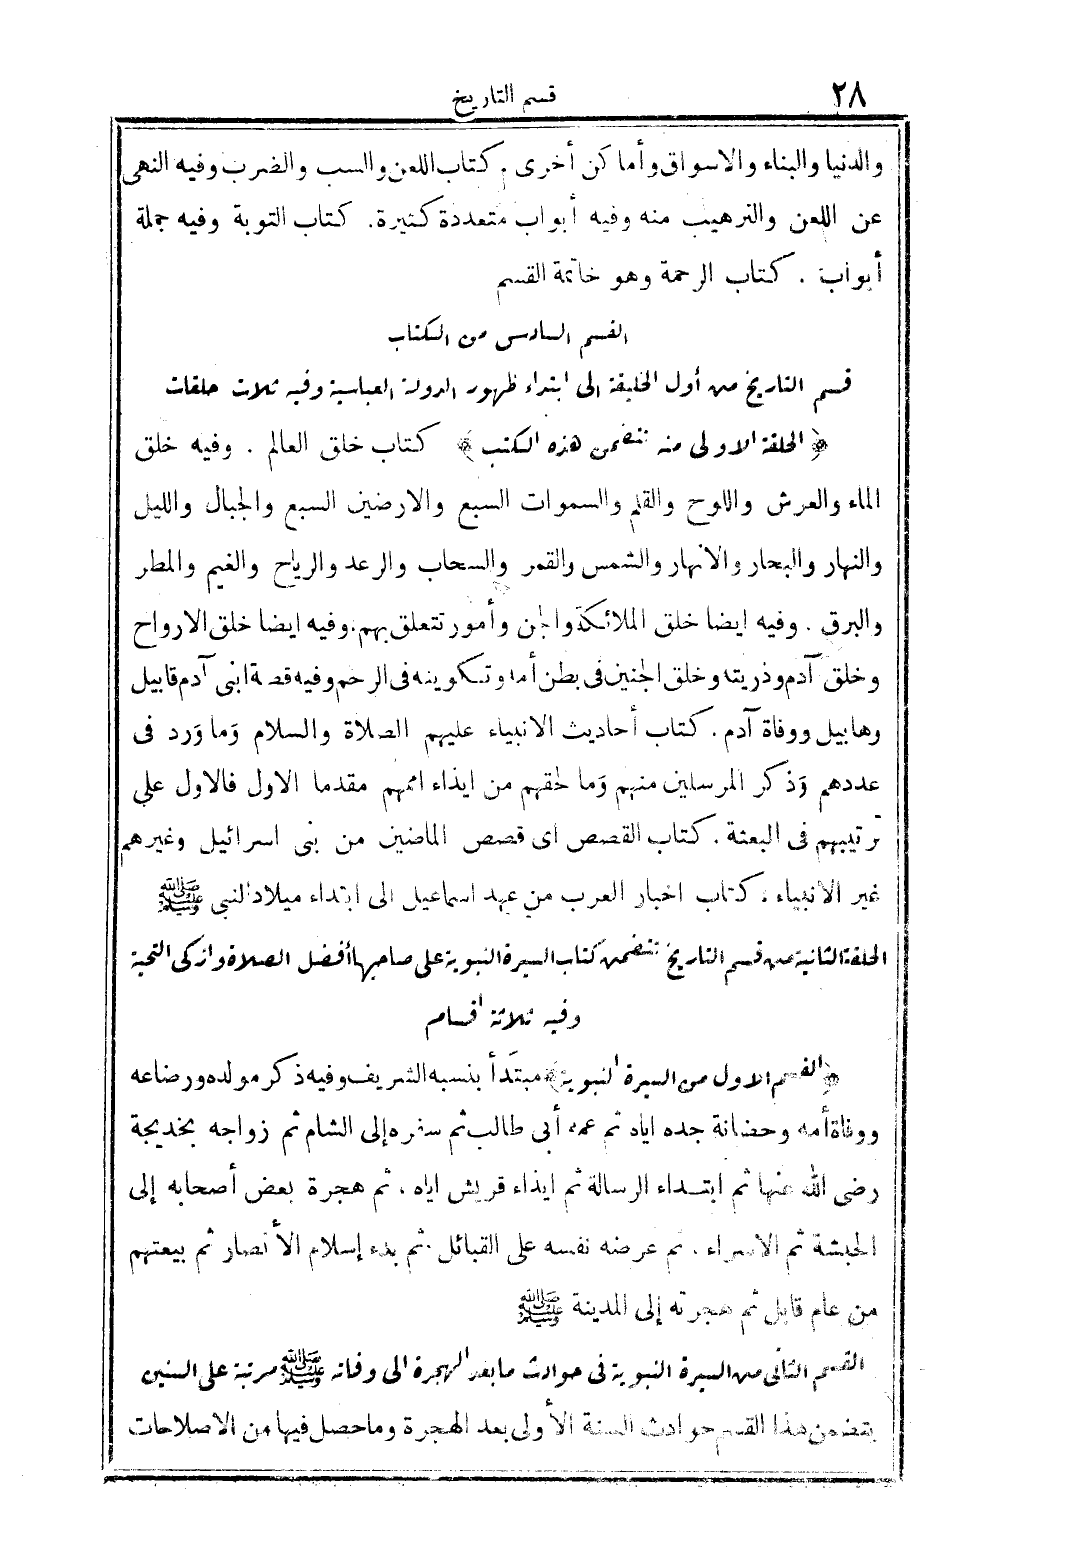 ٢٨ قسم التاريخ
والدنيا والبناء والاسواق وأماكن أخرى . كتاب اللعن والسب والضرب وفيه النهى
عن اللعن والترهيب منه وفيه أبواب متعددة كثيرة. كتاب التوبة وفيه جملة
أبواب . كتاب الرحمة وهو خاتمة القسم
القسم السادس من الكتاب
قسم التاريخ من أول الخليقة الى ابتداء ظهور الدولة العباسية وفيه ثلاث حلقات
﴿ الحلقة الاولى منه تتضمن هذه الكتب ﴾ كتاب خلق العالم . وفيه خلق
الماء والعرش واللوح والقلم والسموات السبع والارضين السبع والجبال والليل
والنهار والبحار والانهار والشمس والقمر والسحاب والرعد والرياح والغيم والمطر
والبرق . وفيه ايضا خلق الملائكة والجن وأمور تتعلق بهم. وفيه ايضا خلق الارواح
وخلق آدم وذريته وخلق الجنين فى بطن أمه وتكوينه فى الرحم وفيه قصة ابنى آدم قابيل
وهابيل ووفاة آدم . كتاب أحاديث الانبياء عليهم الصلاة والسلام وَما وَرد فى
عددهم وَذكر المرسلين منهم وَما لحقهم من ايذاء اممهم مقدما الاول فالاول على
ترتيبهم فى البعثة . كتاب القصص اى قصص الماضين من بنى اسرائيل وغيرهم
غير الانبياء . كتاب اخبار العرب من عهد اسماعيل الى ابتداء ميلاد النبى ﷺ
الحلقة الثانية من قسم التاريخ تتضمن كتاب السيرة النبوية على صاحبها أفضل الصلاة وازكى التحية
وفيه ثلاثة اقسام
﴿ القسم الاول من السيرة النبوية ﴾ مبتدأ بنسبه الشريف وفيه ذكر مولده ورضاعه
ووفاة أمه وحضانة جده اياه ثم عمه أبى طالب ثم سفره إلى الشام ثم زواجه بخديجة
رضى الله عنها ثم ابتداء الرسالة ثم ايذاء قريش اياه ، ثم هجرة بعض أصحابه إلى
الحبشة ثم الاسراء ، ثم عرضه نفسه على القبائل . ثم بدء إسلام الأنصار ثم بيعتهم
من عام قابل ثم هجرته إلى المدينة ﷺ
القسم الثانى من السيرة النبوية فى حوادث ما بعد الهجرة الى وفاته ﷺ مرتبة على السنين
يتضمن هذا القسم حوادث السنة الأولى بعد الهجرة وما حصل فيها من الاصلاحات